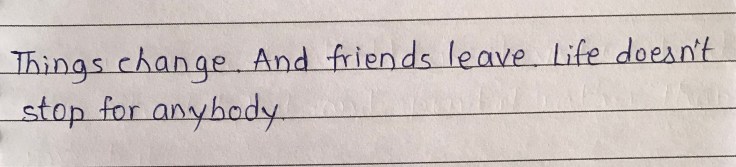 Things change. And friends leave. Life doesn't
stop for anybody.